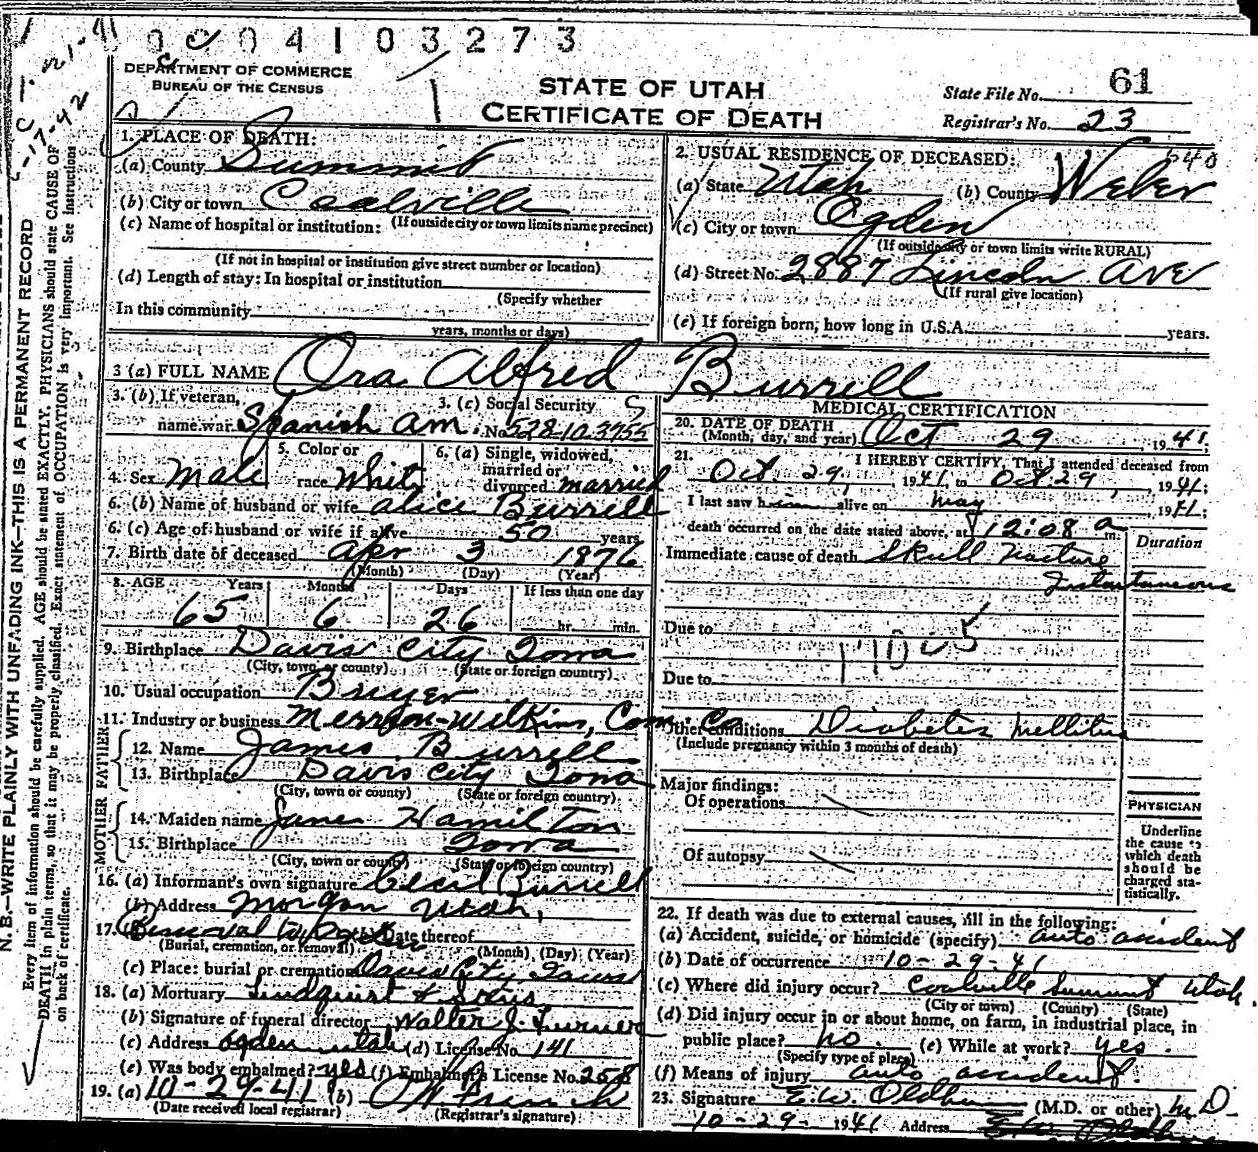 0 0 0 4 1 0 3 2 7 3
DEPARTMENT OF COMMERCE
BUREAU OF THE CENSUS
STATE OF UTAH
CERTIFICATE OF DEATH
State File No. 61
Registrar's No. 23
N. B.—WRITE PLAINLY WITH UNFADING INK—THIS IS A PERMANENT RECORD
Every item of information should be carefully supplied. AGE should be stated EXACTLY. PHYSICIANS should state CAUSE OF
DEATH in plain terms, so that it may be properly classified. Exact statement of OCCUPATION is very important. See Instructions
on back of certificate.
1. PLACE OF DEATH:
(a) County Summit
(b) City or town Coalville
(If outside city or town limits name precinct)
(c) Name of hospital or institution:
(If not in hospital or institution give street number or location)
(d) Length of stay: In hospital or institution
(Specify whether
In this community
years, months or days)
2. USUAL RESIDENCE OF DECEASED:
(a) State Utah (b) County Weber
(c) City or town Ogden
(If outside city or town limits write RURAL)
(d) Street No. 2887 Lincoln Ave
(If rural give location)
(e) If foreign born, how long in U.S.A. years.
3 (a) FULL NAME Ora Alfred Burrell
3. (b) If veteran,
name war. Spanish Am.
3. (c) Social Security
No. 528-10-3955
4. Sex Male
5. Color or
race White
6. (a) Single, widowed,
married or
divorced married
6. (b) Name of husband or wife Alice Burrell
6. (c) Age of husband or wife if alive 50 years
7. Birth date of deceased Apr 3 1876
(Month) (Day) (Year)
8. AGE Years Months Days If less than one day
65 6 26 hr. min.
9. Birthplace Davis City Iowa
(City, town or county) (State or foreign country)
10. Usual occupation Buyer
11. Industry or business Merrion-Wilkins, Com. Co
FATHER
12. Name James Burrell
13. Birthplace Davis City Iowa
(City, town or county) (State or foreign country)
MOTHER
14. Maiden name Jane Hamilton
15. Birthplace Iowa
(City, town or county) (State or foreign country)
16. (a) Informant's own signature Cecil Burrell
(b) Address Morgan Utah,
17. Removal (b) Date thereof
(Burial, cremation, or removal) (Month) (Day) (Year)
(c) Place: burial or cremation Davis City Iowa
18. (a) Mortuary Lindquist & Sons
(b) Signature of funeral director Walter J. Turner
(c) Address Ogden Utah (d) License No. 141
(e) Was body embalmed? yes (f) Embalmer's License No. 258
19. (a) 10-29-41 (b)
(Date received local registrar) (Registrar's signature)
MEDICAL CERTIFICATION
20. DATE OF DEATH
(Month, day, and year) Oct 29, 1941;
21. I HEREBY CERTIFY, That I attended deceased from
Oct. 29, 1941, to Oct 29, 1941;
I last saw him alive on May 1941;
death occurred on the date stated above, at 12:08 a m.
Duration
Immediate cause of death Skull fracture
Instantaneous
Due to
Due to
Other conditions Diabetes Mellitus
(Include pregnancy within 3 months of death)
Major findings:
Of operations
Of autopsy
PHYSICIAN
Underline
the cause to
which death
should be
charged sta-
tistically.
22. If death was due to external causes, fill in the following:
(a) Accident, suicide, or homicide (specify) auto accident
(b) Date of occurrence 10-29-41
(c) Where did injury occur? Coalville Summit Utah.
(City or town) (County) (State)
(d) Did injury occur in or about home, on farm, in industrial place, in
public place? no. (e) While at work? yes.
(Specify type of place)
(f) Means of injury auto accident.
23. Signature E. W. Oldham (M.D. or other) M.D.
10-29-1941 Address